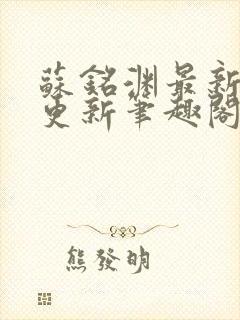 蘇銘渊最新
更新筆趣閣
熊發明